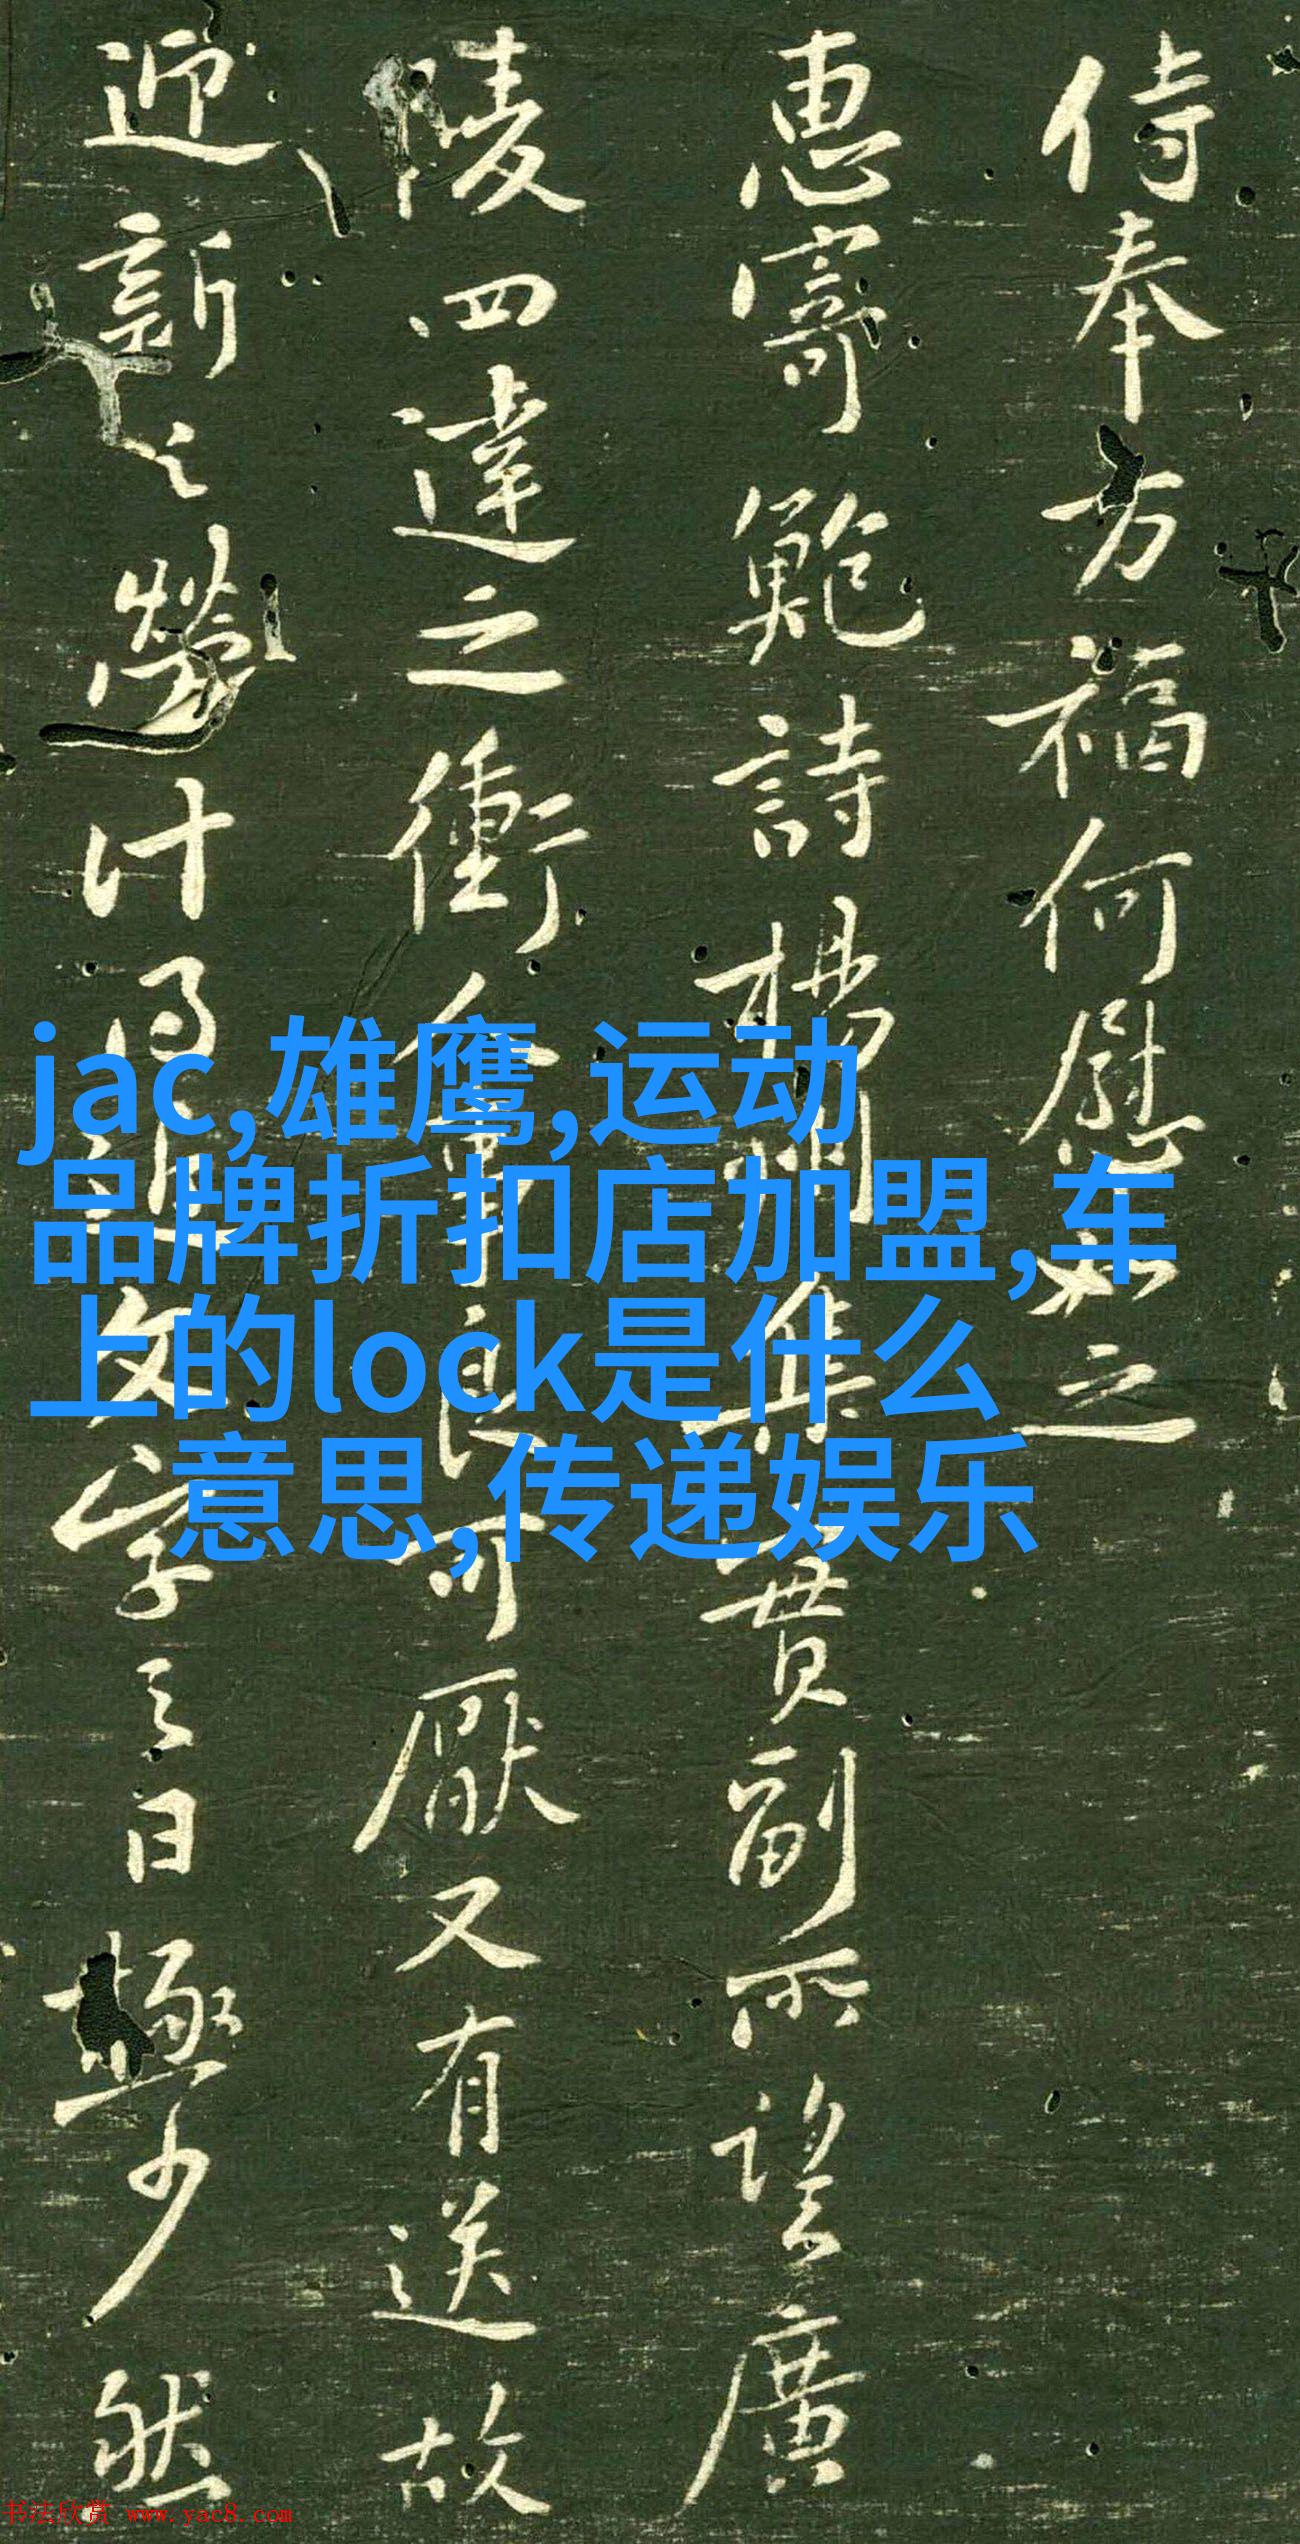 侍奉万福何慰如之
惠寄鲍詩楊
集 貫副所望廣
陵四達之衝
良可厭又有送故
迎新之勞計
文字之日極少然
jac,雄鹰,运动
品牌折扣店加盟,车
上的lock是什么
意思,传递娱乐
书法欣赏 www.yac8.com